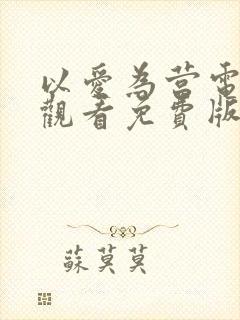 以愛為營電
觀看免費版
蘇莫莫